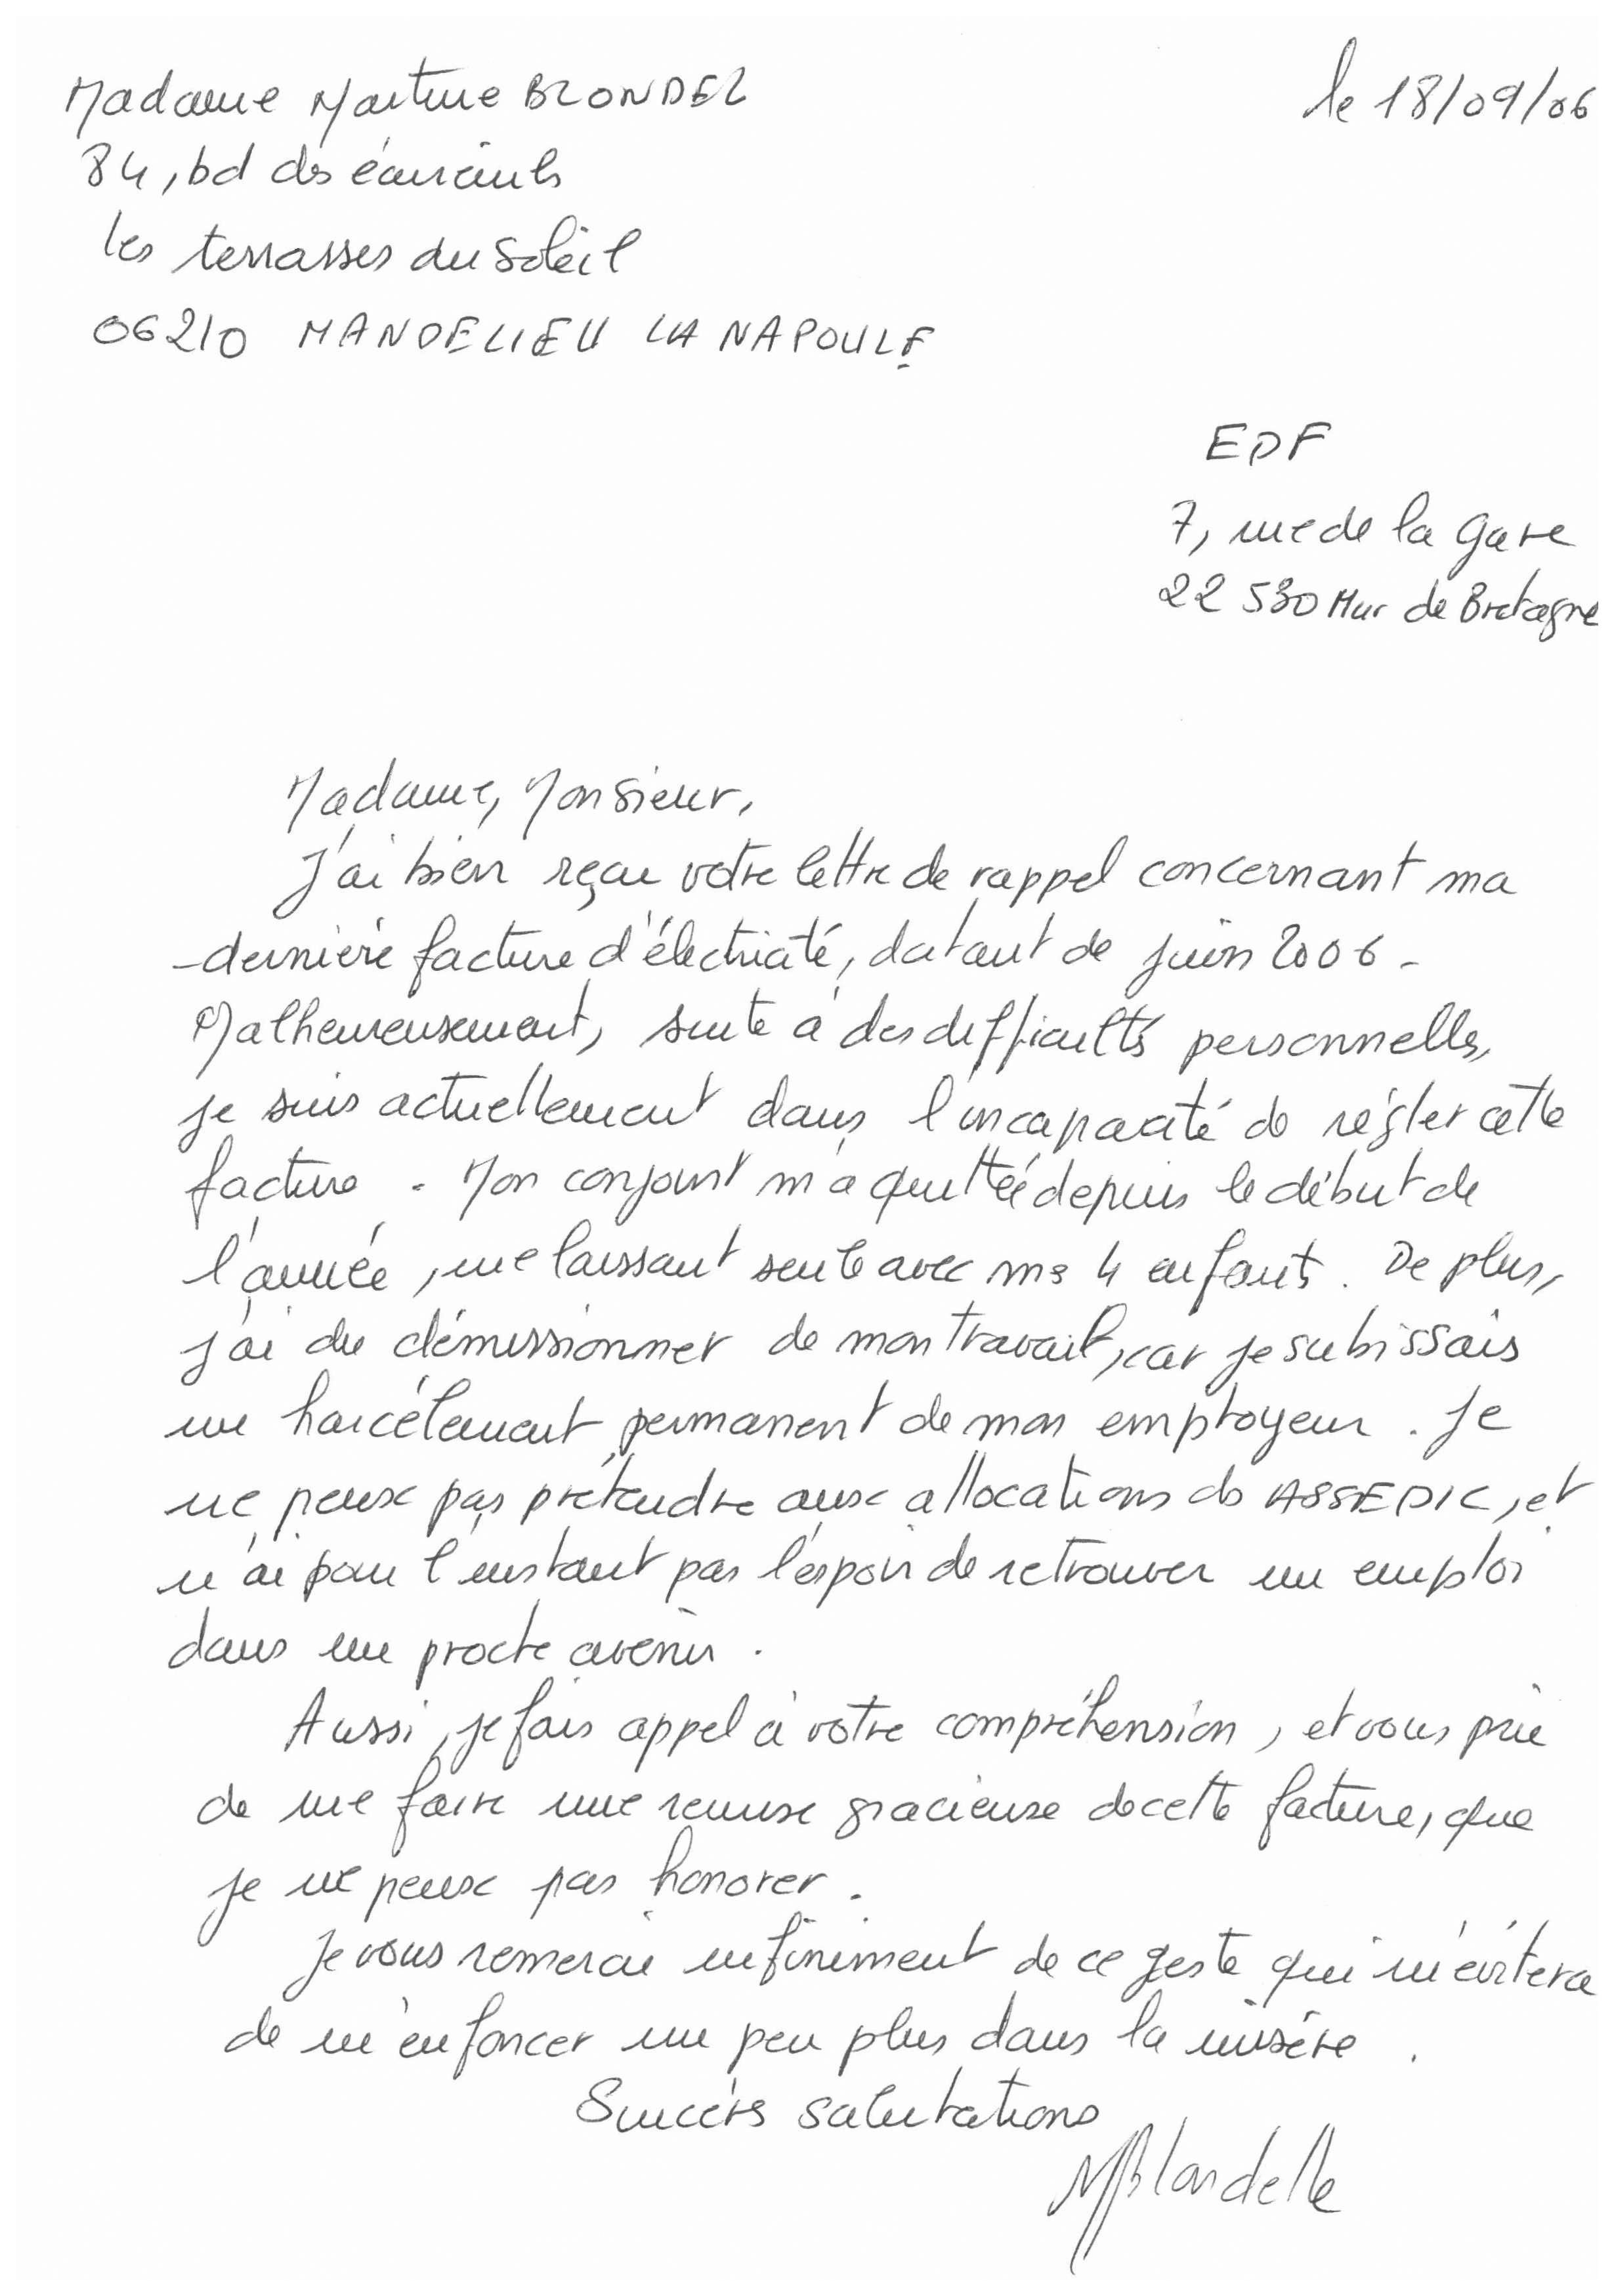 Madame Martine BLONDEL
le 18/09/06
84, bd des écureuils
les terrasses du Soleil
06210 MANDELIEU LA NAPOULE
EDF
7, rue de la Gare
22 530 Mur de Bretagne
Madame, Monsieur,
J'ai bien reçu votre lettre de rappel concernant ma
dernière facture d'électricité, datant de juin 2006.
Malheureusement, suite à des difficultés personnelles,
je suis actuellement dans l'incapacité de régler cette
facture. Mon conjoint m'a quittée depuis le début de
l'année, me laissant seule avec mes 4 enfants. De plus,
j'ai du démissionner de mon travail, car je subissais
un harcèlement permanent de mon employeur. Je
ne peux pas prétendre aux allocations des ASSEDIC, et
n'ai pour l'instant pas l'espoir de retrouver un emploi
dans un proche avenir.
Aussi, je fais appel à votre compréhension, et vous prie
de me faire une remise gracieuse de cette facture, que
je ne peux pas honorer.
Je vous remercie infiniment de ce geste qui m'évitera
de m'enfoncer un peu plus dans la misère.
Sincères salutations
MBlondelle